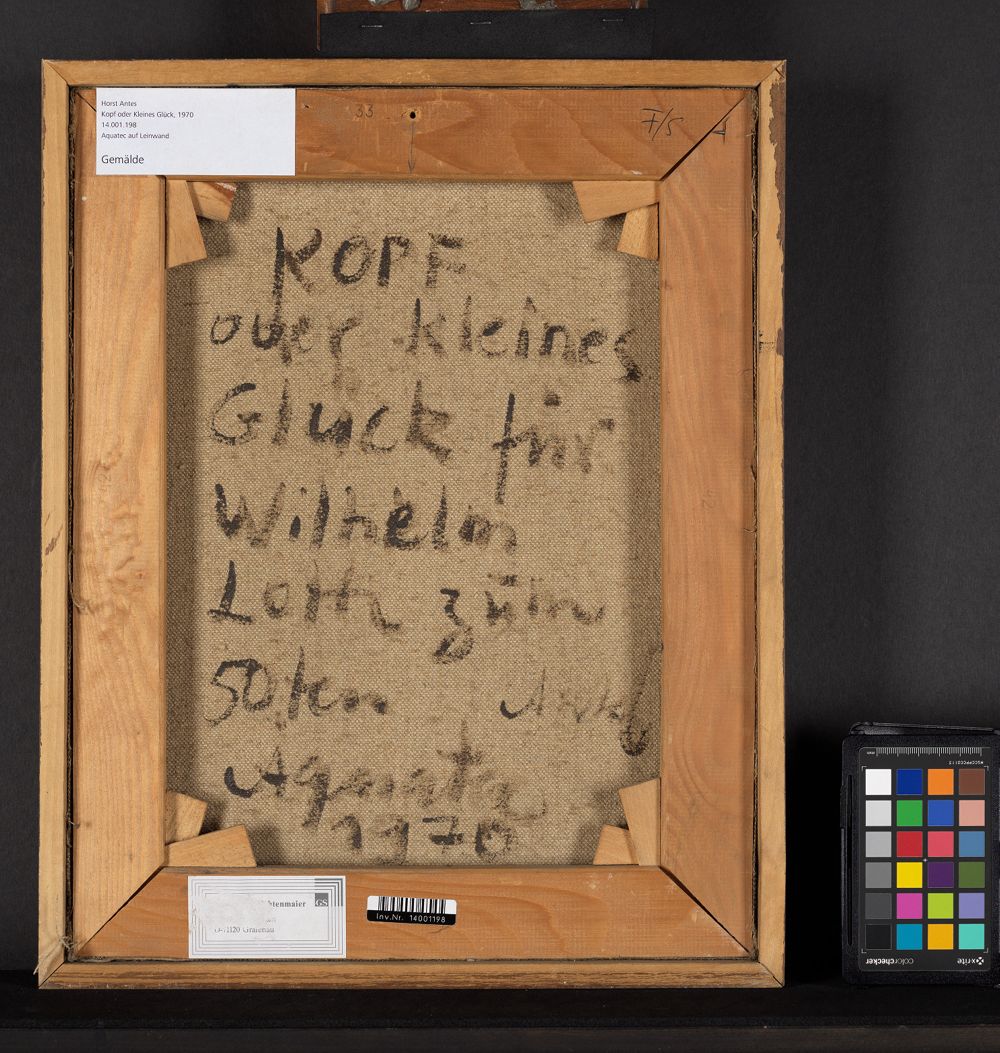 Horst Antes
Kopf oder Kleines Glück, 1970
14.001.198
Aquatec auf Leinwand
Gemälde
33
F/S
KOPF
oder kleines
Glück für
Wilhelm
Loth zum
50ten Antes
Aquatec
1970
tenmaier GS
D-71120 Grafenau
Inv.Nr. 14001198
x-rite
colorchecker